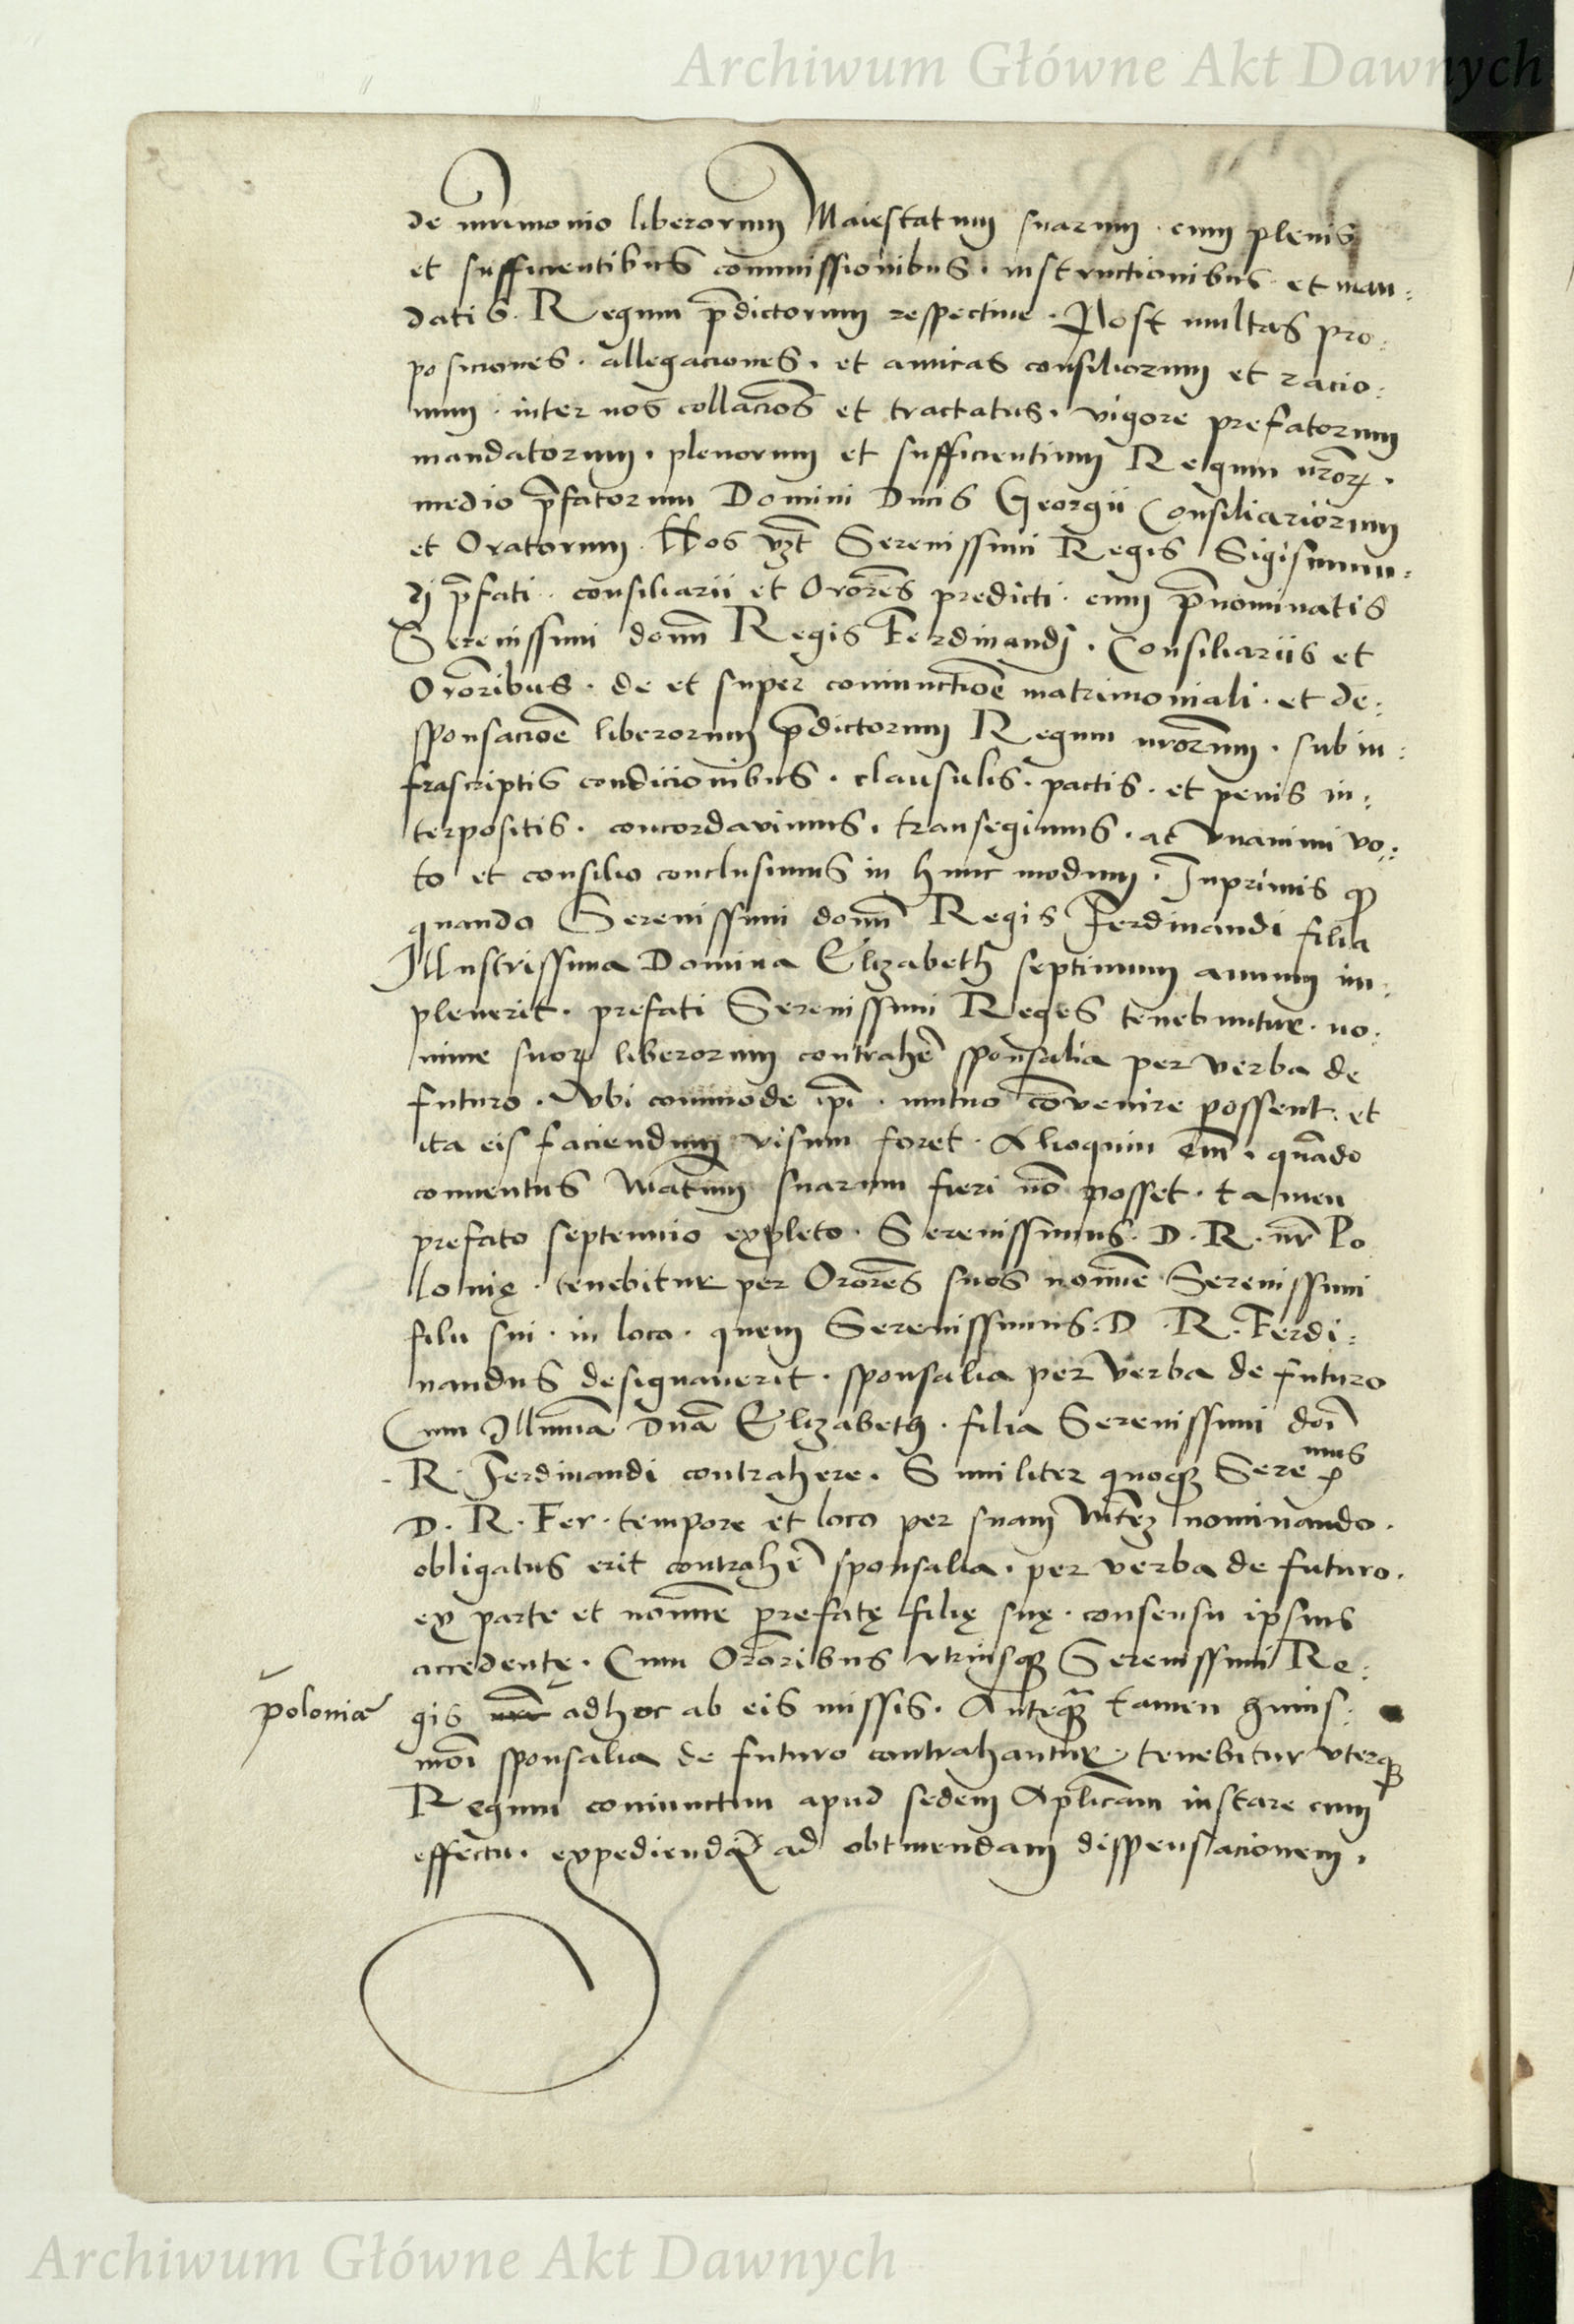 Archiwum Główne Akt Dawnych
de mr̄imonio liberorum Maiestatum suarum · cum plenis
et sufficientibus commissionibus · instructionibus · et man:
datis · Regum p̄dictorum respectiue · Post multas pro:
posiciones · allegaciones · et amicas consiliorum et racio:
num · inter nos collac̄ōēs et tractatus · vigore prefatorum
mandatorum · plenorum et sufficientium Regum nr̄orꝝ ·
medio p̄fatorum Domini Ducis Georgii Consiliariorum
et Oratorum · Nos vꝫt Serenissimi Regis Sigismun:
dj p̄fati · consiliarii et Or̄ores predicti · cum p̄nominatis
Serenissimi domī Regis Ferdinandj · Consiliariis et
Or̄oribus · de et super coniunctiōē matrimoniali · et de:
sponsaciōē liberorum p̄dictorum Regum nr̄orum · sub in:
frascriptis condicionibus · clausulis · pactis · et penis in:
terpositis · concordauimus · transegimus · ac vnanimi vo:
to et consilio conclusimus in hunc modum · Inprimis ꝙ
quando Serenissimi domī Regis Ferdinandi filia
Illustrissima Domina Elizabeth septimum annum im:
pleuerit · prefati Serenissimi Reges tenebuntur · no:
mine suorꝝ liberorum contrahē sponsalia per verba de
futuro · Vbi commode ip̄i · mutuo cōvenire possent · et
ita eis faciendum visum foret · Alioquin em̄ · quādo
conuentus Mātum suarum fieri nō posset · tamen
prefato septennio expleto · Serenissimus · D · R · nr̄ Po
lonię · tenebitur per Or̄ores suos nomīe Serenissimi
filii sui · in loco · quem Serenissimus · D · R · Ferdi:
nandus designauerit · sponsalia per verba de futuro
Cum Illm̄a Dnā Elizabeth · filia Serenissimi doī
R · Ferdinandi contrahere · Similiter quoqꝫ Sere mus
D · R · Fer · tempore et loco per suam Mtēꝫ nominando ·
obligatus erit contrahē sponsalia · per verba de futuro ·
ex parte et nomīe prefatę filię suę · consensu ipsius
accedentę · Cum Or̄oribus vtriusqꝫ Serenissimi Re:
poloniæ gis nr̄i adhoc ab eis missis · Anteqꝫ̄ tamen huius:
moi sponsalia de futuro contrahantur · tenebitur vterqꝫ
Regum coniunctim apud sedem Ap̄licam instare cum
effectu · expediendāqꝫ ad obtinendam dispensacionem ·
Archiwum Główne Akt Dawnych